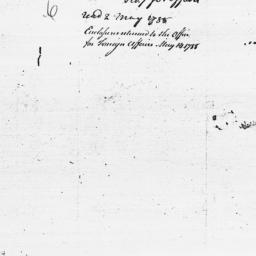 6
Read 2 May 1788
Enclosure returned to the Office
for Foreign Affairs. May 14 1788